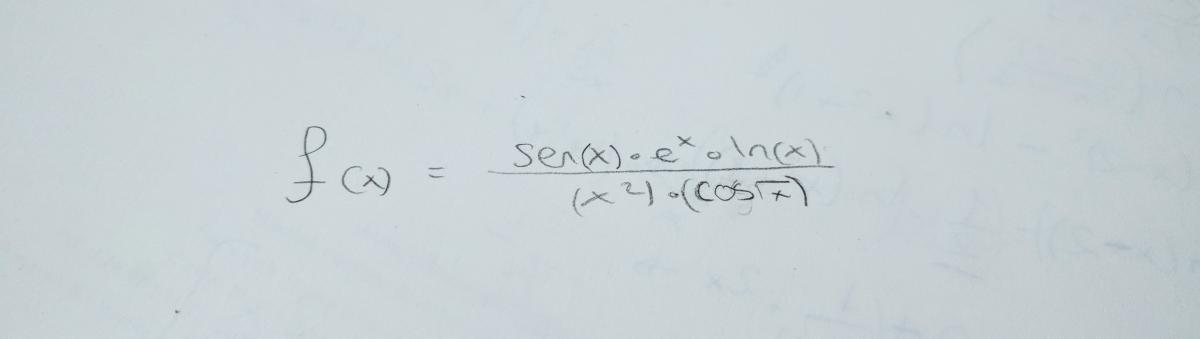 f(x) = sen(x)·e^x·ln(x) / (x^2)·(cos√x)